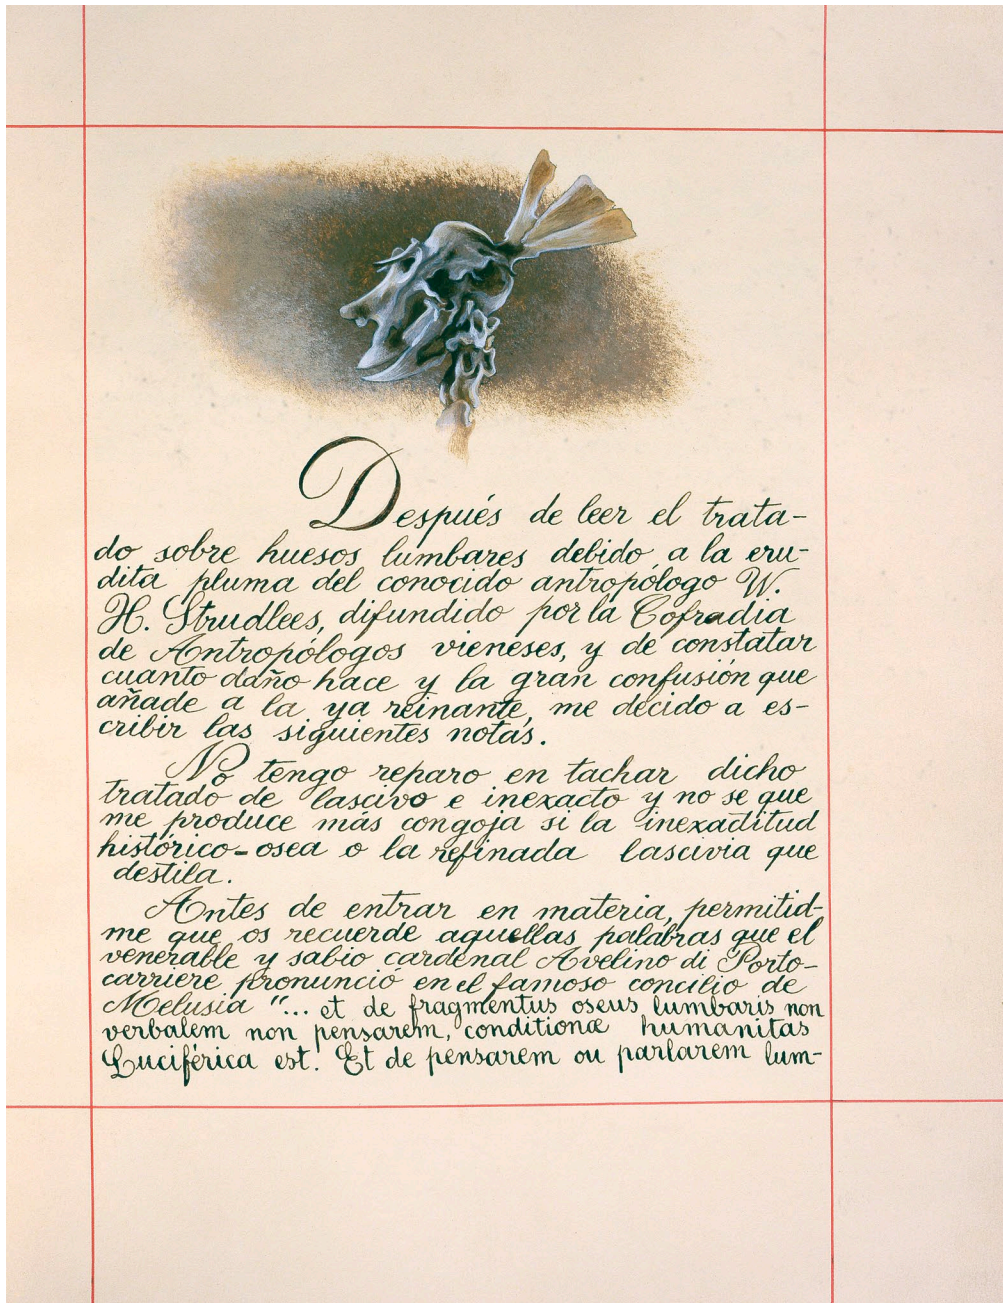 Después de leer el trata-
do sobre huesos lumbares debido a la eru-
dita pluma del conocido antropólogo W.
H. Strudlees, difundido por la Cofradia
de Antropólogos vieneses, y de constatar
cuanto daño hace y la gran confusión que
añade a la ya reinante, me decido a es-
cribir las siguientes notas.
No tengo reparo en tachar dicho
tratado de lascivo e inexacto y no se que
me produce más congoja si la inexactitud
histórico-osea o la refinada lascivia que
destila.
Antes de entrar en materia, permitid-
me que os recuerde aquellas palabras que el
venerable y sabio cardenal Avelino di Porto-
carriere pronunció en el famoso concilio de
Melusia "... et de fragmentus oseus lumbaris non
verbalem non pensarem, conditionæ humanitas
Luciférica est! Et de pensarem ou parlarem lum-